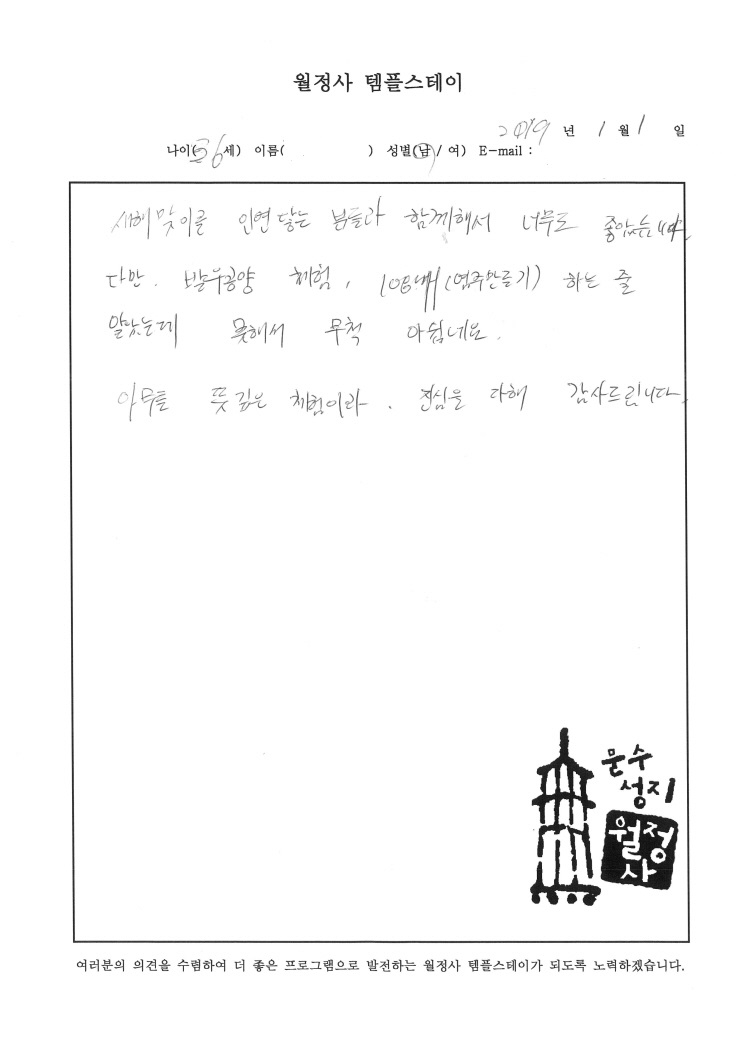 월정사 템플스테이
2019 년 1 월 1 일
나이(56세) 이름( ) 성별(남/여) E-mail :
새해맞이를 인연 닿는 분들과 함께해서 너무도 좋았습니다.
다만. 발우공양 체험, 108배(염주만들기) 하는 줄
알았는데 못해서 무척 아쉽네요.
아무튼 뜻깊은 체험이라. 진심을 다해 감사드립니다.
문수
성지
월정
사
여러분의 의견을 수렴하여 더 좋은 프로그램으로 발전하는 월정사 템플스테이가 되도록 노력하겠습니다.